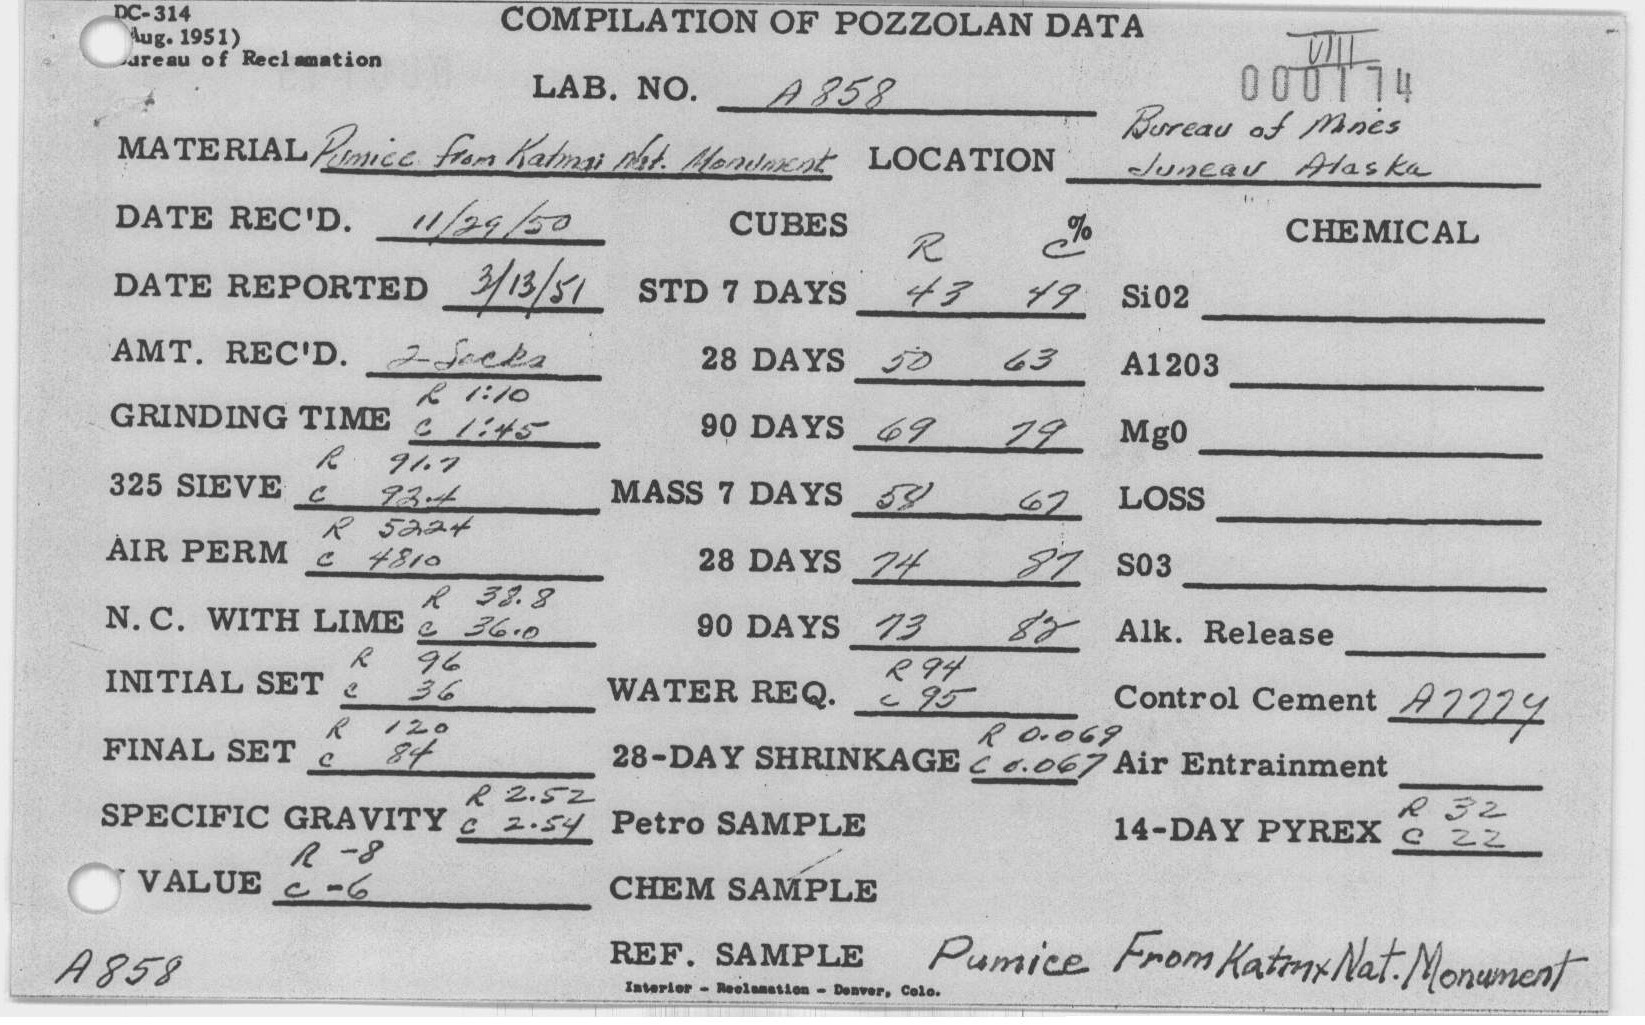 DC-314
Aug. 1951)
Bureau of Reclamation
COMPILATION OF POZZOLAN DATA
VIII
000174
LAB. NO. A858
MATERIAL Pumice from Katmai Nat. Monument
LOCATION Bureau of Mines
Juneau Alaska
DATE REC'D. 11/29/50
CUBES R % C
CHEMICAL
DATE REPORTED 3/13/51
STD 7 DAYS 43 49
Si02
AMT. REC'D. 2 Sacks
28 DAYS 50 63
A1203
GRINDING TIME R 1:10
C 1:45
90 DAYS 69 79
Mg0
325 SIEVE R 91.7
C 92.4
MASS 7 DAYS 58 67
LOSS
AIR PERM R 5224
C 4810
28 DAYS 74 87
S03
N.C. WITH LIME R 38.8
C 36.0
90 DAYS 73 82
Alk. Release
INITIAL SET R 96
C 36
WATER REQ. R 94
C 95
Control Cement
FINAL SET R 120
C 84
28-DAY SHRINKAGE R 0.069
C 0.067
Air Entrainment
SPECIFIC GRAVITY R 2.52
C 2.54
Petro SAMPLE
14-DAY PYREX R 32
C 22
VALUE R -8
C -6
CHEM SAMPLE
REF. SAMPLE
Pumice From Nat. Monument
A858
Interior - Reclamation - Denver, Colo.